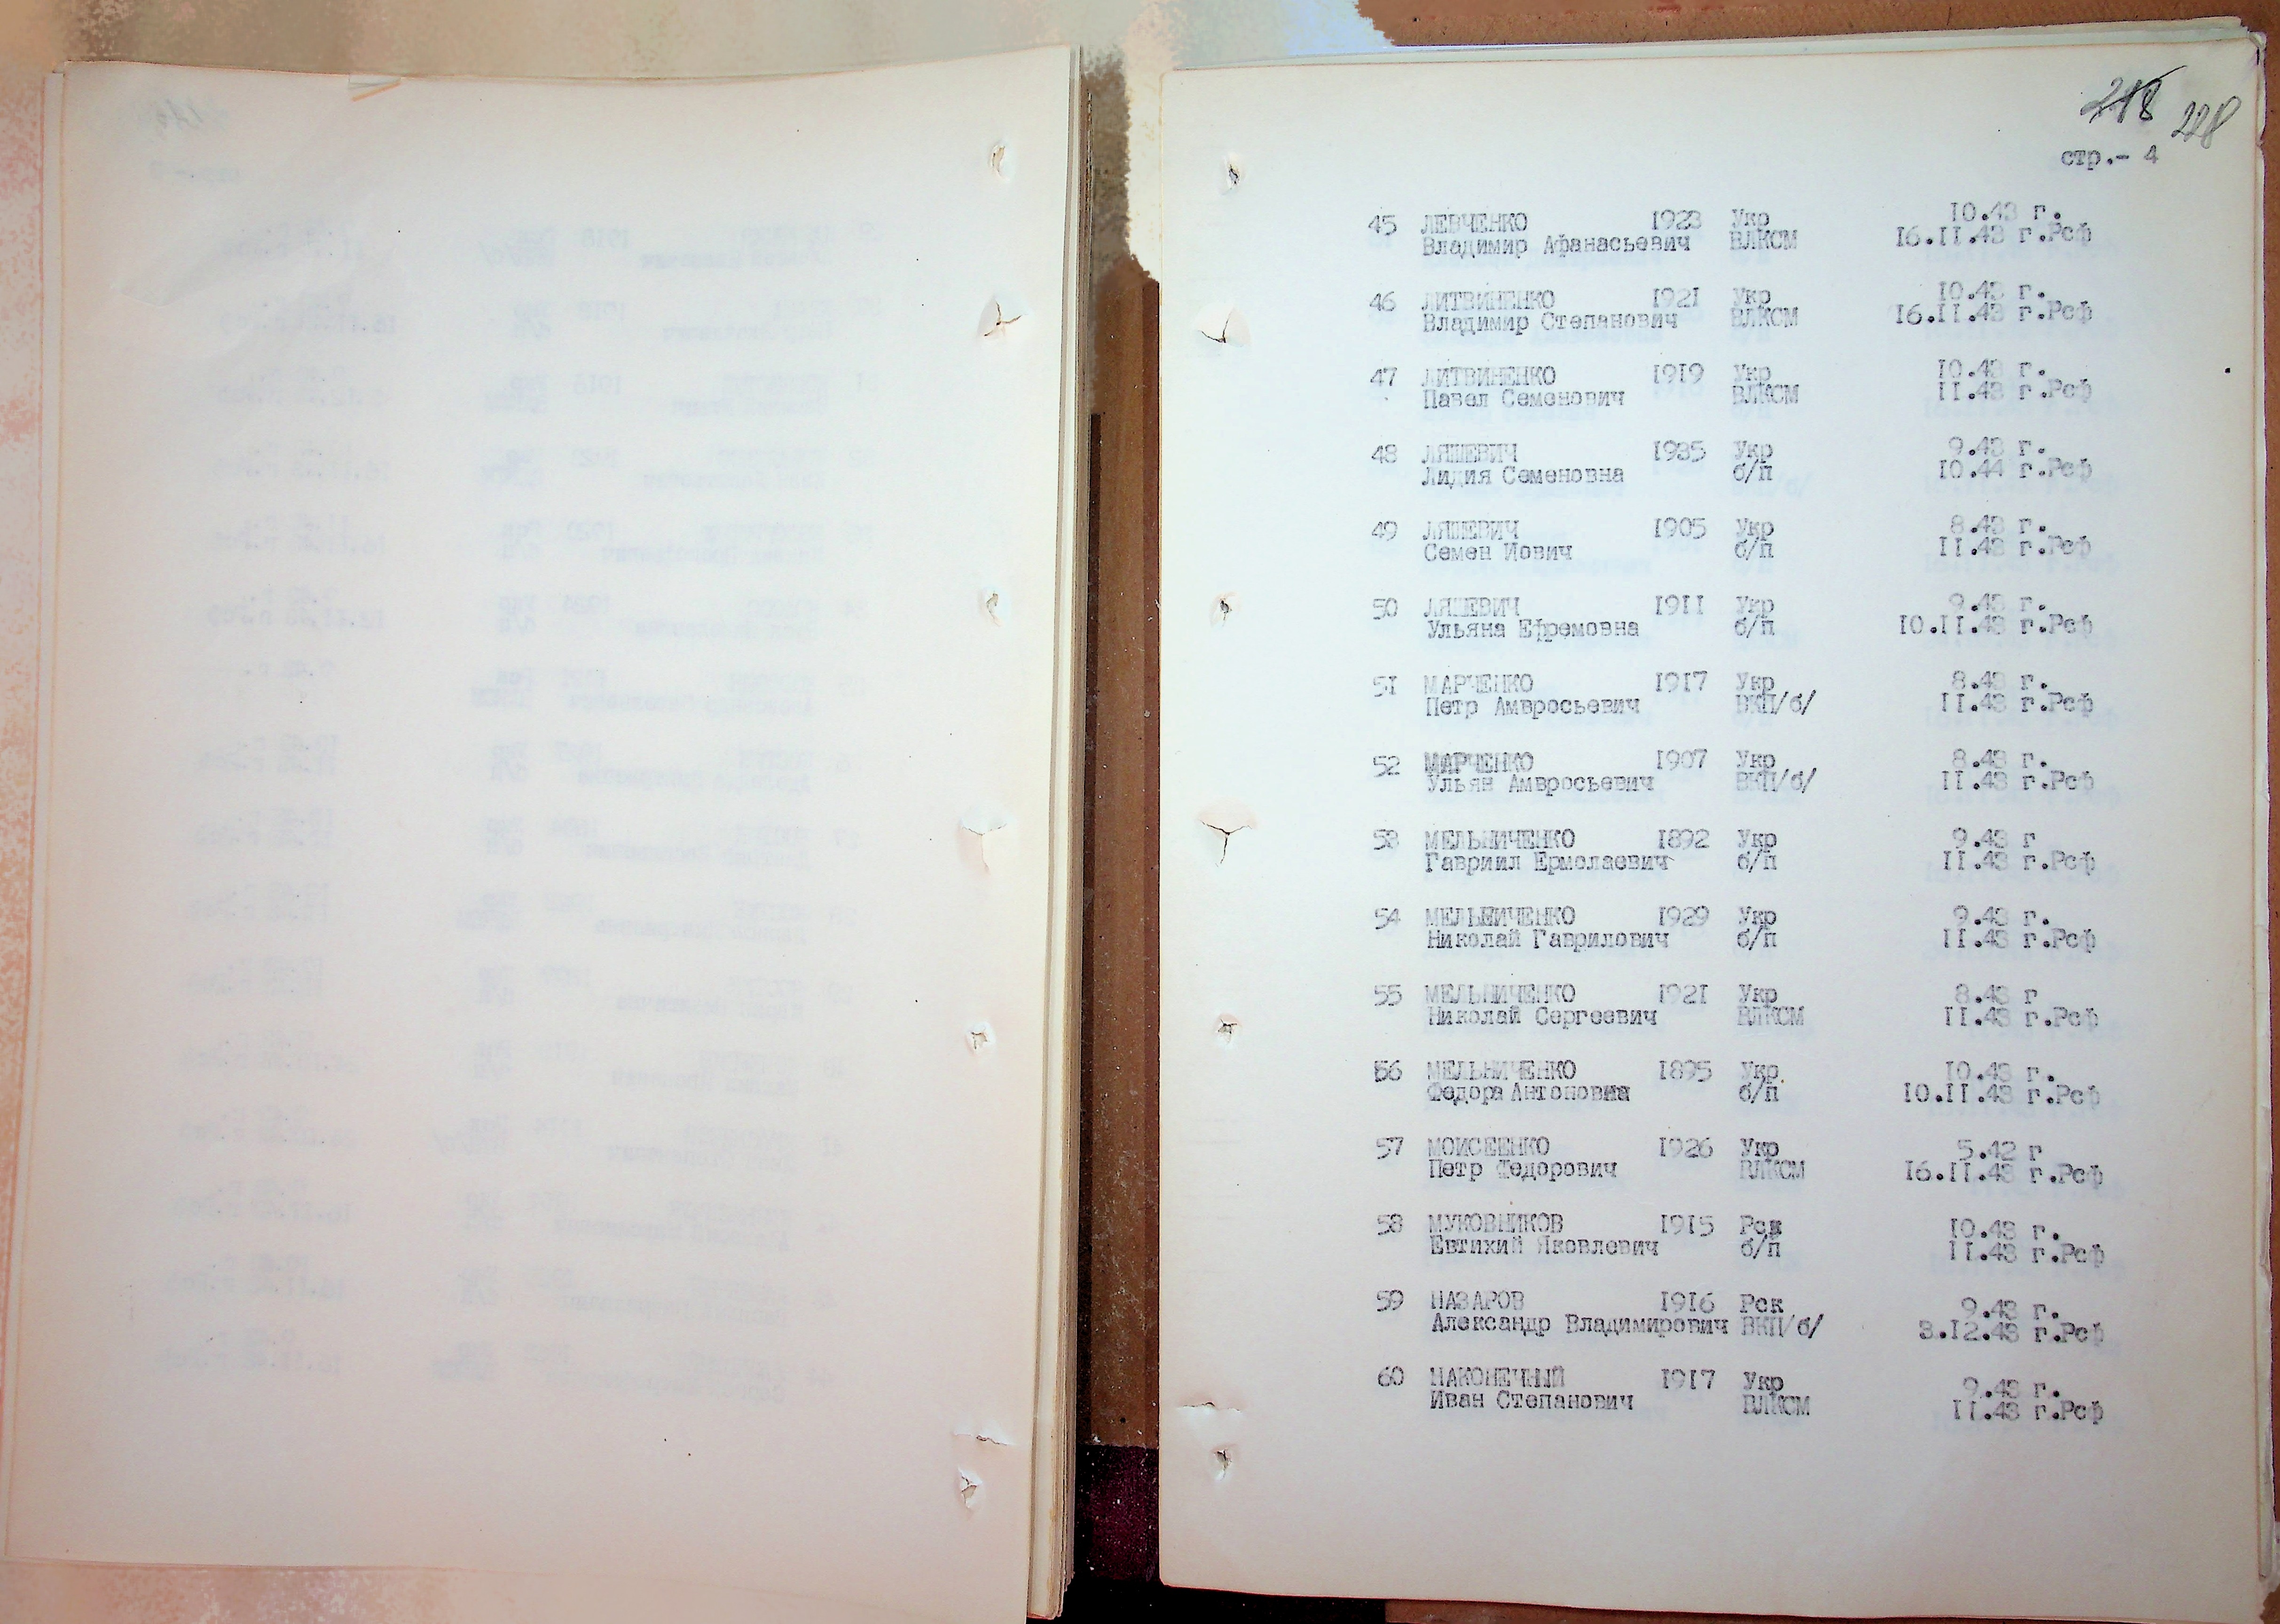 218 228
стр.- 4
45 ЛЕВЧЕНКО 1923 Укр 10.43 г.
Владимир Афанасьевич ВЛКСМ 16.11.43 г.Рсф
46 ЛИТВИНЕНКО 1921 Укр 10.43 г.
Владимир Степанович ВЛКСМ 16.11.43 г.Рсф
47 ЛИТВИНЕНКО 1919 Укр 10.43 г.
Павел Семенович ВЛКСМ 11.43 г.Рсф
48 ЛЯШЕВИЧ 1935 Укр 9.43 г.
Лидия Семеновна б/п 10.44 г.Рсф
49 ЛЯШЕВИЧ 1905 Укр 8.43 г.
Семен Иович б/п 11.43 г.Рсф
50 ЛЯШЕВИЧ 1911 Укр 9.43 г.
Ульяна Ефремовна б/п 10.11.43 г.Рсф
51 МАРЧЕНКО 1917 Укр 8.43 г.
Петр Амвросьевич ВКП/б/ 11.43 г.Рсф
52 МАРЧЕНКО 1907 Укр 8.43 г.
Ульян Амвросьевич ВКП/б/ 11.43 г.Рсф
53 МЕЛЬНИЧЕНКО 1892 Укр 9.43 г
Гавриил Ермолаевич б/п 11.43 г.Рсф
54 МЕЛЬНИЧЕНКО 1929 Укр 9.43 г.
Николай Гаврилович б/п 11.43 г.Рсф
55 МЕЛЬНИЧЕНКО 1921 Укр 8.43 г
Николай Сергеевич ВЛКСМ 11.43 г.Рсф
56 МЕЛЬНИЧЕНКО 1895 Укр 10.43 г.
Федора Антоновна б/п 10.11.43 г.Рсф
57 МОИСЕЕНКО 1926 Укр 5.42 г
Петр Федорович ВЛКСМ 16.11.43 г.Рсф
58 МУКОВНИКОВ 1915 Рск 10.43 г.
Евтихий Яковлевич б/п 11.43 г.Рсф
59 НАЗАРОВ 1916 Рск 9.43 г.
Александр Владимирович ВКП/б/ 3.12.43 г.Рсф
60 НАКОНЕЧНЫЙ 1917 Укр 9.43 г.
Иван Степанович ВЛКСМ 11.43 г.Рсф